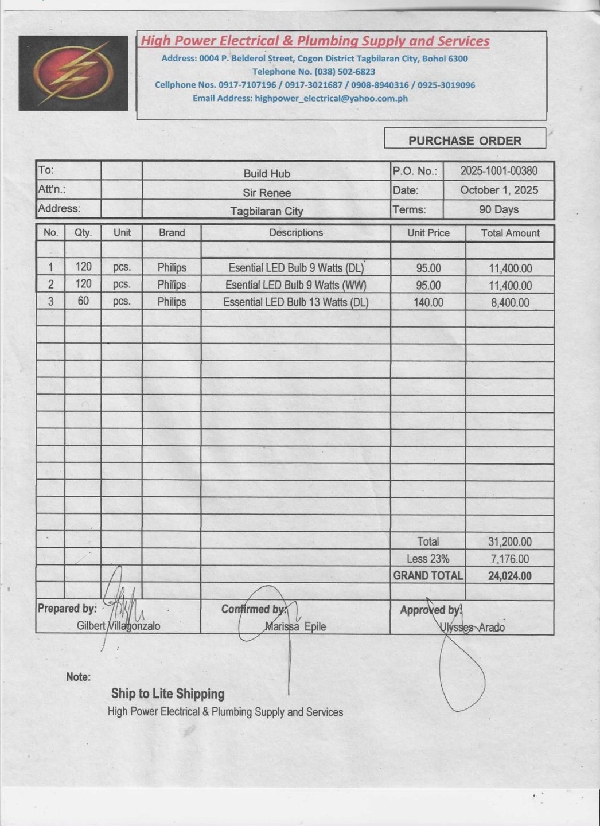 High Power Electrical & Plumbing Supply and Services
Address: 0004 P. Belderol Street, Cogon District Tagbilaran City, Bohol 6300
Telephone No. (038) 502-6823
Cellphone Nos. 0917-7107196 / 0917-3021687 / 0908-8940316 / 0925-3019096
Email Address: highpower_electrical@yahoo.com.ph
PURCHASE ORDER
To: Build Hub P.O. No.: 2025-1001-00380
Att'n.: Sir Renee Date: October 1, 2025
Address: Tagbilaran City Terms: 90 Days
No. Qty. Unit Brand Descriptions Unit Price Total Amount
1 120 pcs. Philips Esential LED Bulb 9 Watts (DL) 95.00 11,400.00
2 120 pcs. Philips Esential LED Bulb 9 Watts (WW) 95.00 11,400.00
3 60 pcs. Philips Essential LED Bulb 13 Watts (DL) 140.00 8,400.00
Total 31,200.00
Less 23% 7,176.00
GRAND TOTAL 24,024.00
Prepared by: Confirmed by: Approved by:
Gilbert Villagonzalo Marissa Epile Ulysses Arado
Note:
Ship to Lite Shipping
High Power Electrical & Plumbing Supply and Services